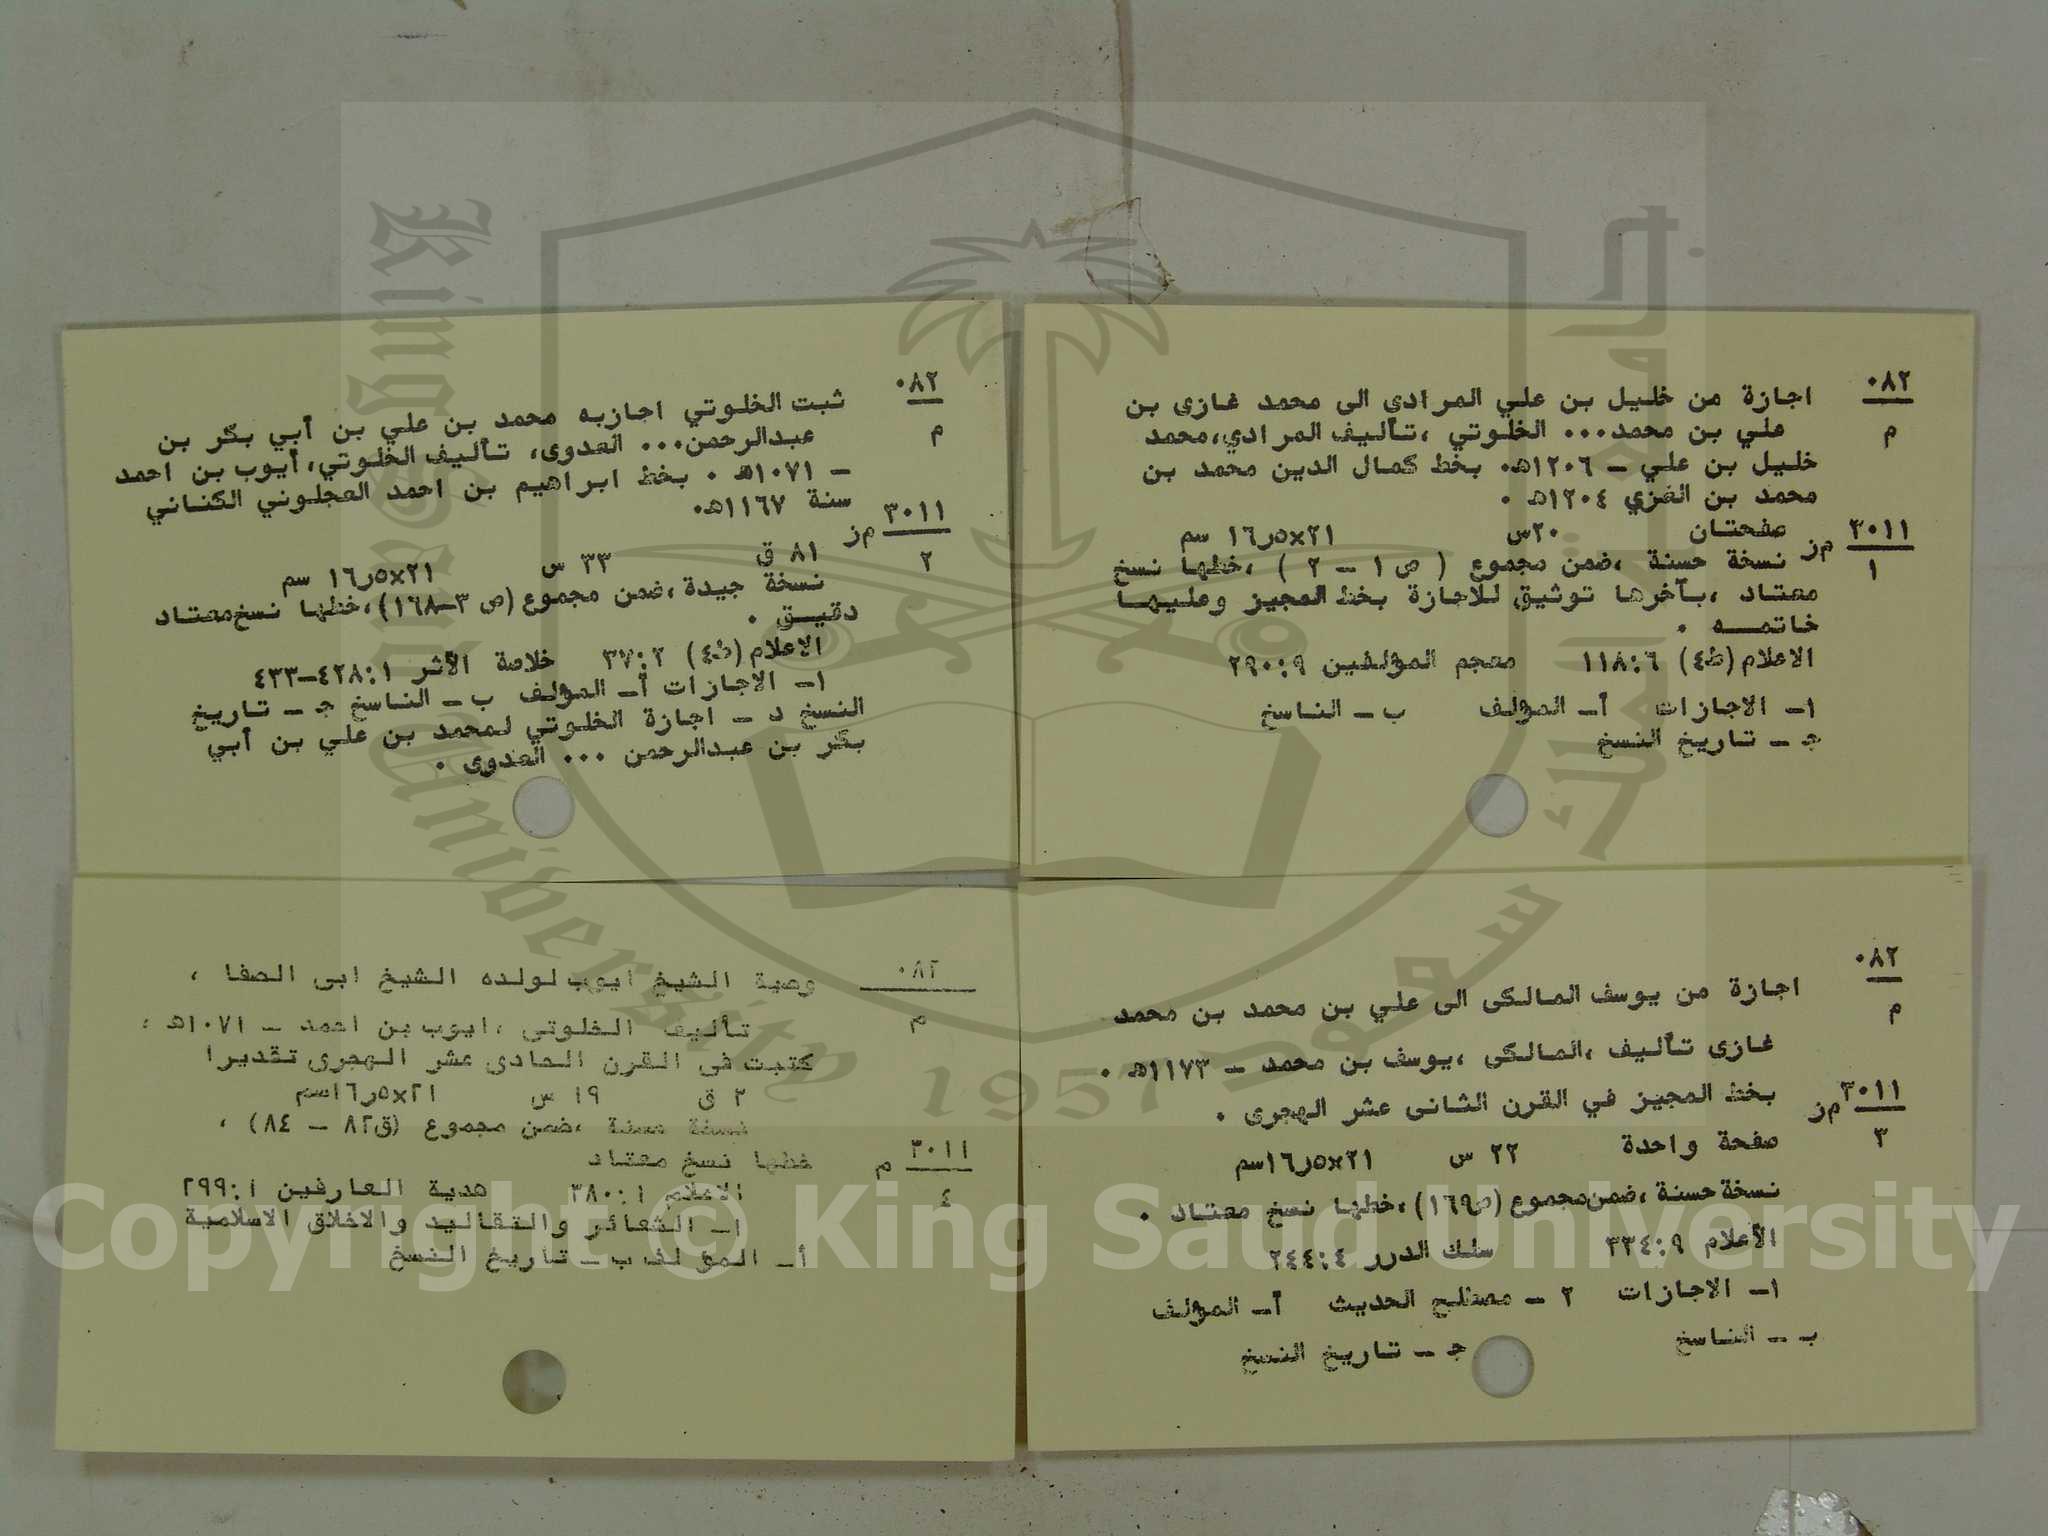 ٠٨٢
م
اجازة من خليل بن علي المرادي الى محمد غازى بن
علي بن محمد... الخلوتي ،تأليف المرادي،محمد
خليل بن علي - ١٢٠٦هـ. بخط كمال الدين محمد بن
محمد بن الغزي ١٢٠٤هـ .
٣٠١١ م.ز
١
صفحتان ٢٠س ٢١×١٦٫٥ سم
نسخة حسنة ،ضمن مجموع ( ص ١ - ٢ ) ،خطها نسخ
معتاد ،بآخرها توثيق للاجازة بخط المجيز وعليها
خاتمه .
الاعلام (ط٤) ٦:١١٨ معجم المؤلفين ٩:٢٩٠
١- الاجازات أ- المؤلف ب - الناسخ
جـ - تاريخ النسخ
٠٨٢
م
ثبت الخلوتي اجازبه محمد بن علي بن أبي بكر بن
عبدالرحمن... العدوى، تأليف الخلوتي،أيوب بن احمد
- ١٠٧١هـ . بخط ابراهيم بن احمد العجلوني الكناني
سنة ١١٦٧هـ.
٣٠١١ م.ز
٢
٨١ ق ٣٣ س ٢١×١٦٫٥ سم
نسخة جيدة ،ضمن مجموع (ص ٣-١٦٨)،خطها نسخ معتاد
دقيق .
الاعلام (ط٤) ٢:٣٧ خلاصة الأثر ١:٤٢٨-٤٣٣
١- الاجازات أ- المؤلف ب - الناسخ جـ - تاريخ
النسخ د - اجازة الخلوتي لمحمد بن علي بن أبي
بكر بن عبدالرحمن ... العدوى .
٠٨٢
م
اجازة من يوسف المالكى الى علي بن محمد بن محمد
غازى تأليف ،المالكى ،يوسف بن محمد - ١١٧٣هـ .
بخط المجيز في القرن الثانى عشر الهجرى .
٣٠١١ م.ز
٣
صفحة واحدة ٢٢ س ٢١×١٦٫٥سم
نسخة حسنة ،ضمن مجموع (ص١٦٩)،خطها نسخ معتاد .
الأعلام ٩:٣٣٤ سلك الدرر ٤:٢٤٤
١- الاجازات ٢ - مصطلح الحديث أ- المؤلف
ب - الناسخ جـ - تاريخ النسخ
٠٨٢
م
وصية الشيخ ايوب لولده الشيخ ابى الصفا ،
تأليف الخلوتى ،ايوب بن احمد - ١٠٧١هـ ،
كتبت فى القرن الحادى عشر الهجرى تقديرا
٢ ق ١٩ س ٢١×١٦٫٥سم
نسخة حسنة ،ضمن مجموع (ق٨٢ - ٨٤) ،
خطها نسخ معتاد
٣٠١١ م
٤
الاعلام ١:٣٨٠ هدية العارفين ١:٢٩٩
١- الشعائر والتقاليد والاخلاق الاسلامية
أ- المؤلف ب - تاريخ النسخ
King Saud University
1957
جامعة الملك سعود
Copyright © King Saud University